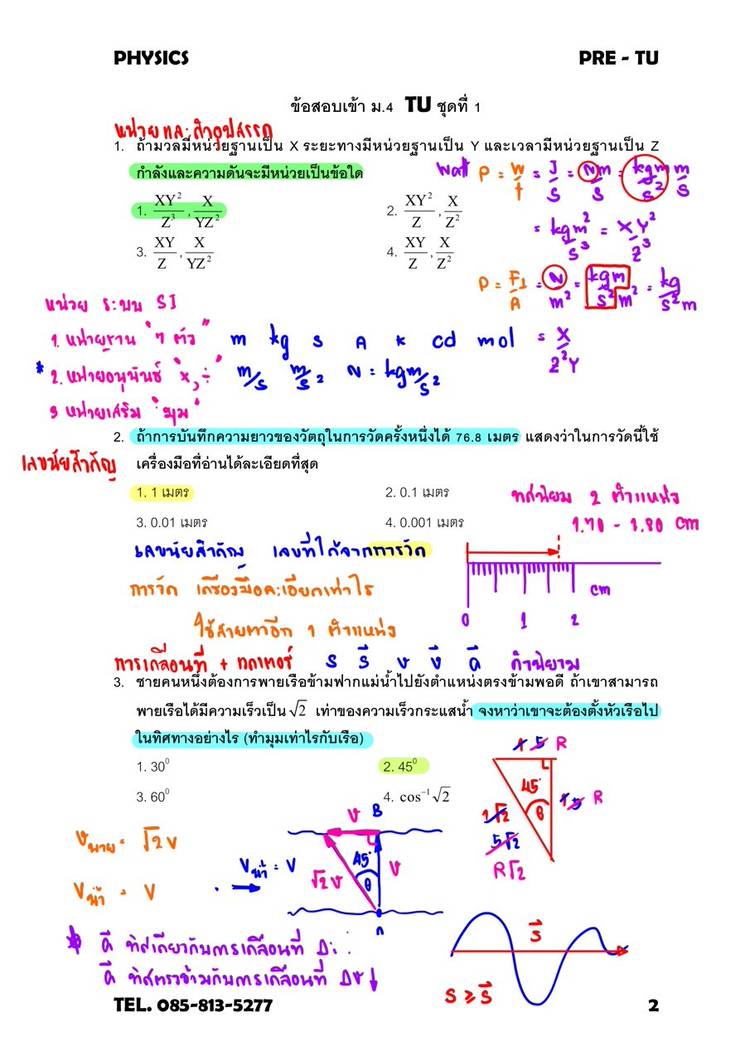 PHYSICS PRE - TU
ข้อสอบเข้า ม.4 TU ชุดที่ 1
หน่วยและคำอุปสรรค
1. ถ้ามวลมีหน่วยฐานเป็น X ระยะทางมีหน่วยฐานเป็น Y และเวลามีหน่วยฐานเป็น Z
กำลังและความดันจะมีหน่วยเป็นข้อใด
Watt P = W/t = J/s = Nm/s = kgm/s² m/s
1. XY²/Z³ , X/YZ² 2. XY²/Z , X/Z²
= kgm²/s³ = XY²/Z³
3. XY/Z , X/YZ² 4. XY/Z , X/Z²
P = F⊥/A = N/m² = kgm/s²m² = kg/s²m
= X/Z²Y
หน่วย ระบบ SI
1. หน่วยฐาน "7 ตัว" m kg s A K cd mol
* 2. หน่วยอนุพันธ์ "x, ÷" m/s m/s² N = kgm/s²
3 หน่วยเสริม "มุม"
2. ถ้าการบันทึกความยาวของวัตถุในการวัดครั้งหนึ่งได้ 76.8 เมตร แสดงว่าในการวัดนี้ใช้
เลขนัยสำคัญ เครื่องมือที่อ่านได้ละเอียดที่สุด
1. 1 เมตร 2. 0.1 เมตร
3. 0.01 เมตร 4. 0.001 เมตร
ทศนิยม 2 ตำแหน่ง
1.70 - 1.80 cm
เลขนัยสำคัญ เลขที่ได้จากการวัด
การวัด เครื่องมือละเอียดเท่าไร
ใช้สายตาอีก 1 ตำแหน่ง
cm
0 1 2
การเคลื่อนที่ + เวกเตอร์ s s⃗ v v⃗ a⃗ คำนิยาม
3. ชายคนหนึ่งต้องการพายเรือข้ามฟากแม่น้ำไปยังตำแหน่งตรงข้ามพอดี ถ้าเขาสามารถ
พายเรือได้มีความเร็วเป็น √2 เท่าของความเร็วกระแสน้ำ จงหาว่าเขาจะต้องตั้งหัวเรือไป
ในทิศทางอย่างไร (ทำมุมเท่าไรกับเรือ)
1. 30⁰ 2. 45⁰
3. 60⁰ 4. cos⁻¹√2
1 5 R
45°
θ
1 5 R
1√2
5√2
R√2
V B
Vพาย = √2V
Vน้ำ = V
Vน้ำ = V
√2V 45° θ V
A
* a⃗ ทิศเดียวกับการเคลื่อนที่
a⃗ ทิศตรงข้ามกับการเคลื่อนที่ Δv↓
s⃗
S ≥ s⃗
TEL. 085-813-5277 2